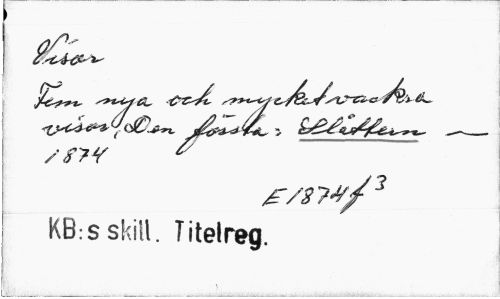 Visor
Fem nya och mycket vackra
visor, Den första: Slåttern —
1874
E 1874 f 3
KB:s skill. Titelreg.